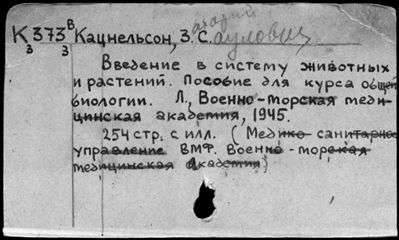 К 373 В Кацнельсон, З. С.
3 3
Захарий Саулович
Введение в систему животных
и растений. Пособие для курса общей
биологии. Л., Военно-морская меди-
цинская академия, 1945.
254 стр. с илл. (Медико-санитарное
управление ВМФ. Военно-морская
медицинская академия)